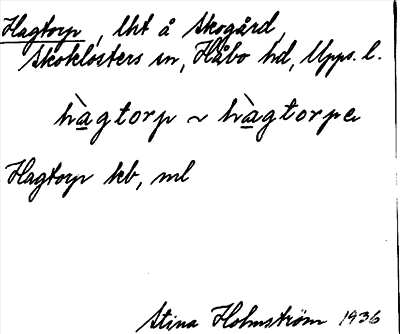 Hagtorp, lht å Skogård,
Skoklosters sn, Håbo hd, Upps. l.
hàgtorp ~ hàgtorpa
Hagtorp kb, ml
Stina Holmström 1936